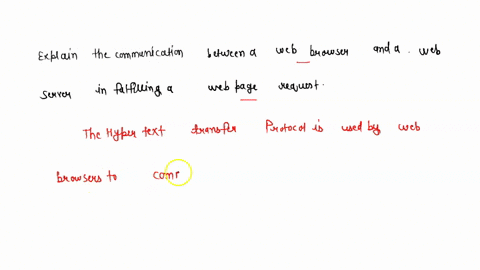 Explain the communication between a web browser and a web
server in fulfilling a web page request.
The Hyper text transfer Protocol is used by web
browsers to com